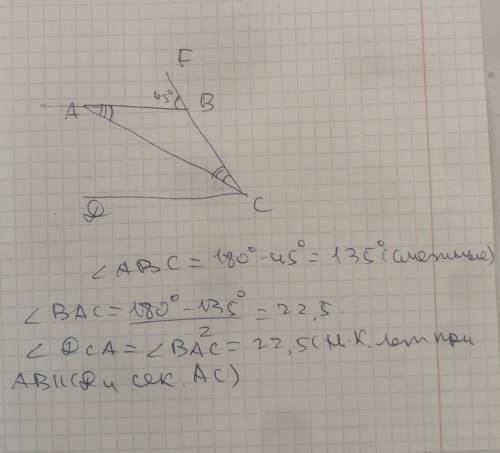 F
45°
A
B
D
C
∠ABC = 180° - 45° = 135° (смежные)
∠BAC = 180° - 135° / 2 = 22,5
∠DCA = ∠BAC = 22,5 (н.к. лет при
AB||CD и сек. AC)